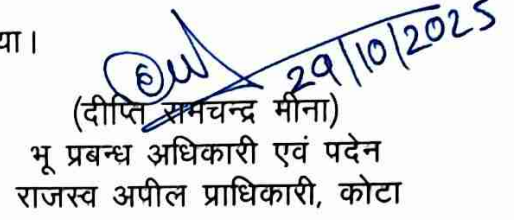 या।
29/10/2025
(दीप्ति रामचन्द्र मीना)
भू प्रबन्ध अधिकारी एवं पदेन
राजस्व अपील प्राधिकारी, कोटा